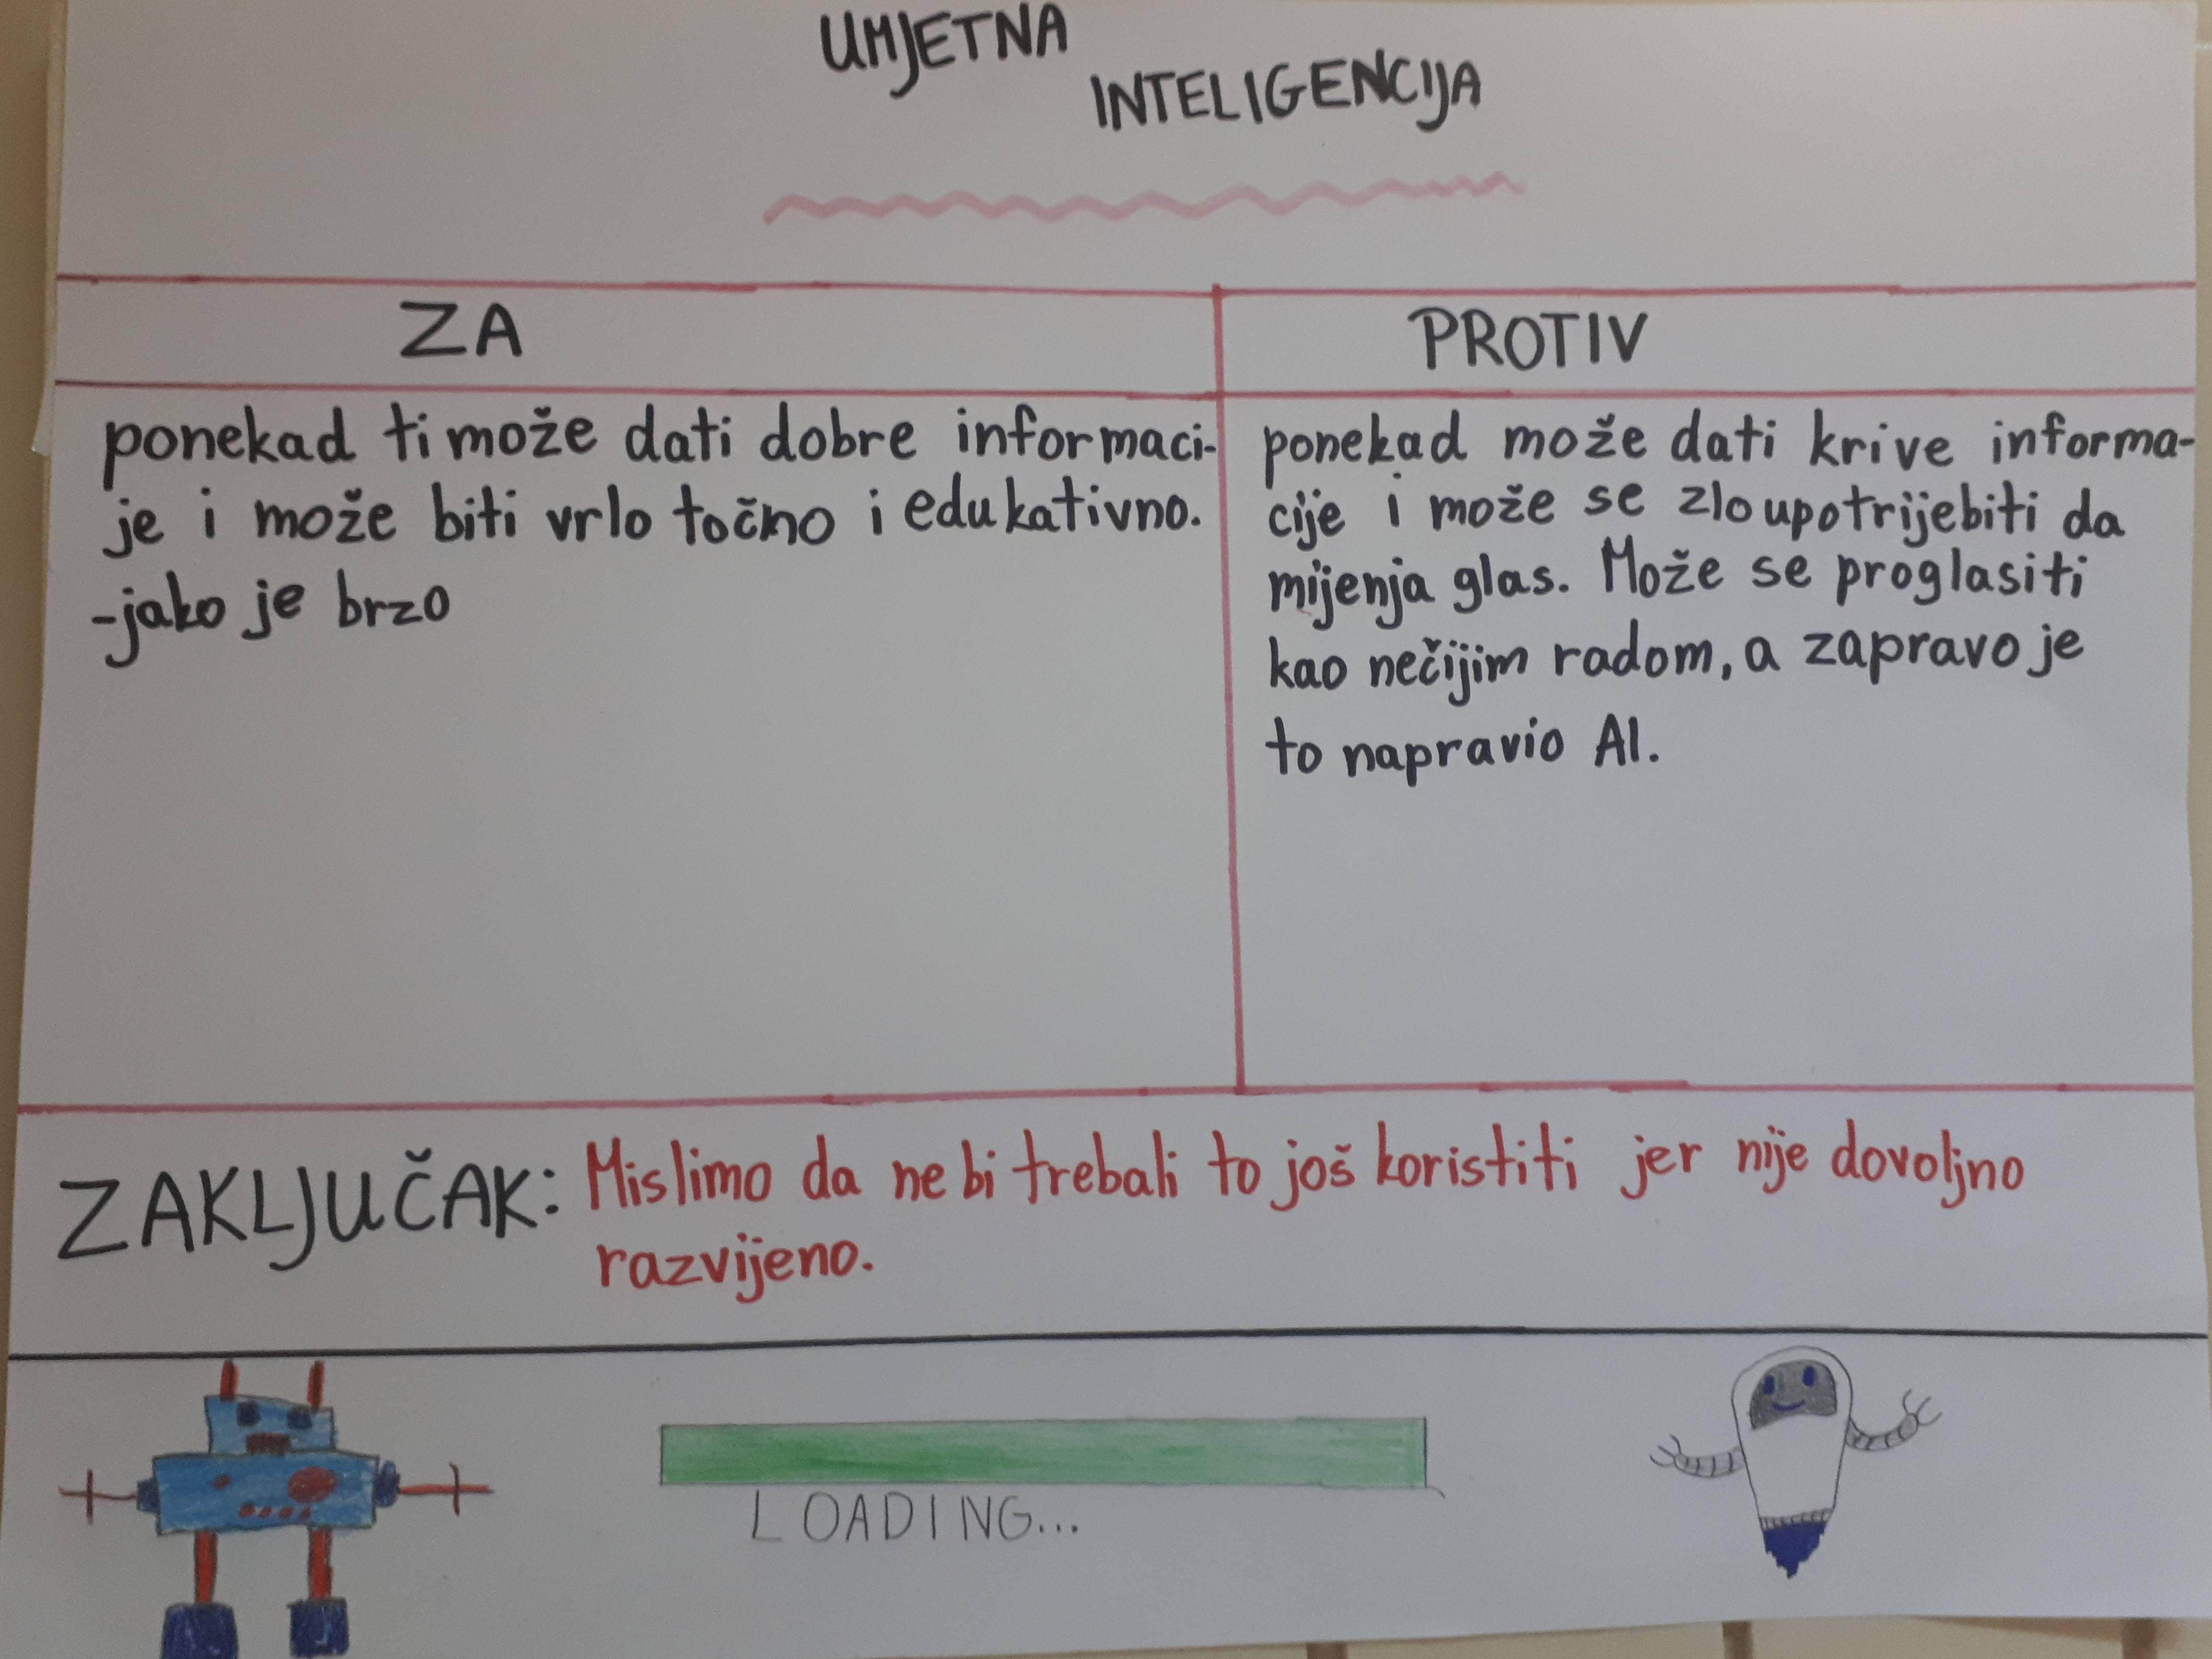 UMJETNA
INTELIGENCIJA
ZA
ponekad ti može dati dobre informaci-
je i može biti vrlo točno i edukativno.
-jako je brzo
PROTIV
ponekad može dati krive informa-
cije i može se zloupotrijebiti da
mijenja glas. Može se proglasiti
kao nečijim radom, a zapravo je
to napravio AI.
ZAKLJUČAK: Mislimo da nebi trebali to još koristiti jer nije dovoljno
razvijeno.
LOADING...